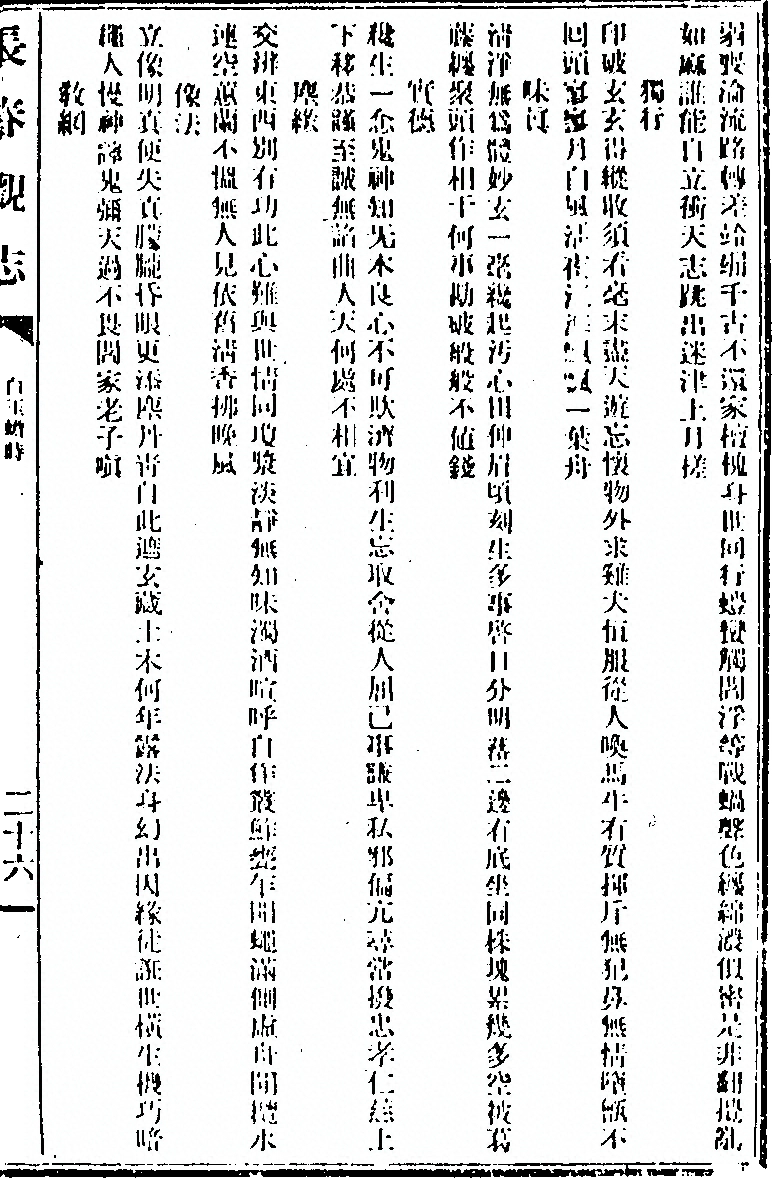 淪流路轉差千古不還家身世同行蠻觸閻浮等戰蝸聲色纏綿濃似密是非翻攪亂
如麻誰能自立衝天志跳出迷津上月槎
獨行
印破玄玄得縱收須看毫末盡天遊忘懷物外求雞犬恒服從人喚馬牛有質揮斤無犯鼻無情墮甑不
回頭寥寥月白風清夜江海飄飄一葉舟
味真
清淨無為體妙玄一塵纔起污心田伸眉頃刻生多事啓口分明落二邊有底坐同株塊累幾多空被葛
藤纏聚頭作相干何事勘破般般不值錢
實德
纔生一念鬼神知本良心不可欺濟物利生忘取舍從人屈己事謙卑私邪偏亢尋當撥忠孝仁慈上
下移恭謹至誠無諂曲人天何處不相宜
塵緣
交拼東西別有功此心難與世情同瓊漿淡靜無知味濁酒喧呼自作叢鮓甕年開蠅滿側虛舟閒纜水
連空蕙蘭不慍無人見依舊清香拂晚風
像法
立像明真便失真朦朧昏眼更添塵丹青自此遮玄藏土木何年露法身幻出因緣徒誑世橫生機巧暗
人慢神謗鬼彌天過不畏閻家老子嗔
教網
長春觀志
白玉蟾時
二十六